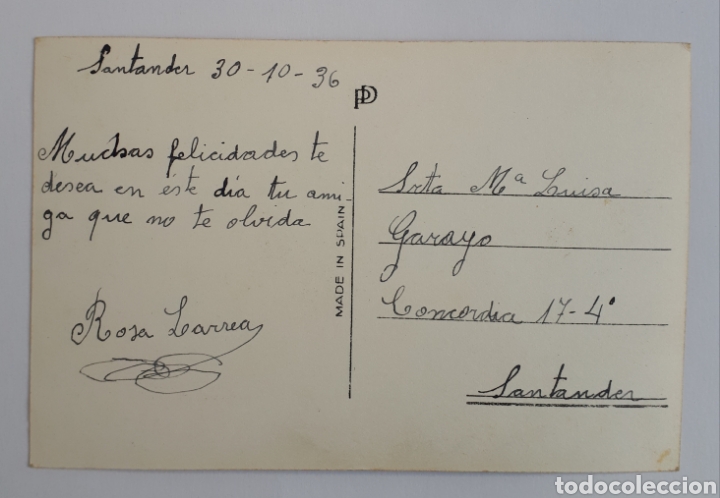 Santander 30-10-36
PD
Muchas felicidades te
desea en éste día tu ami-
ga que no te olvida
Rosa Larrea
MADE IN SPAIN
Srta Mª Luisa
Garayo
Concordia 17-4º
Santander
todocoleccion